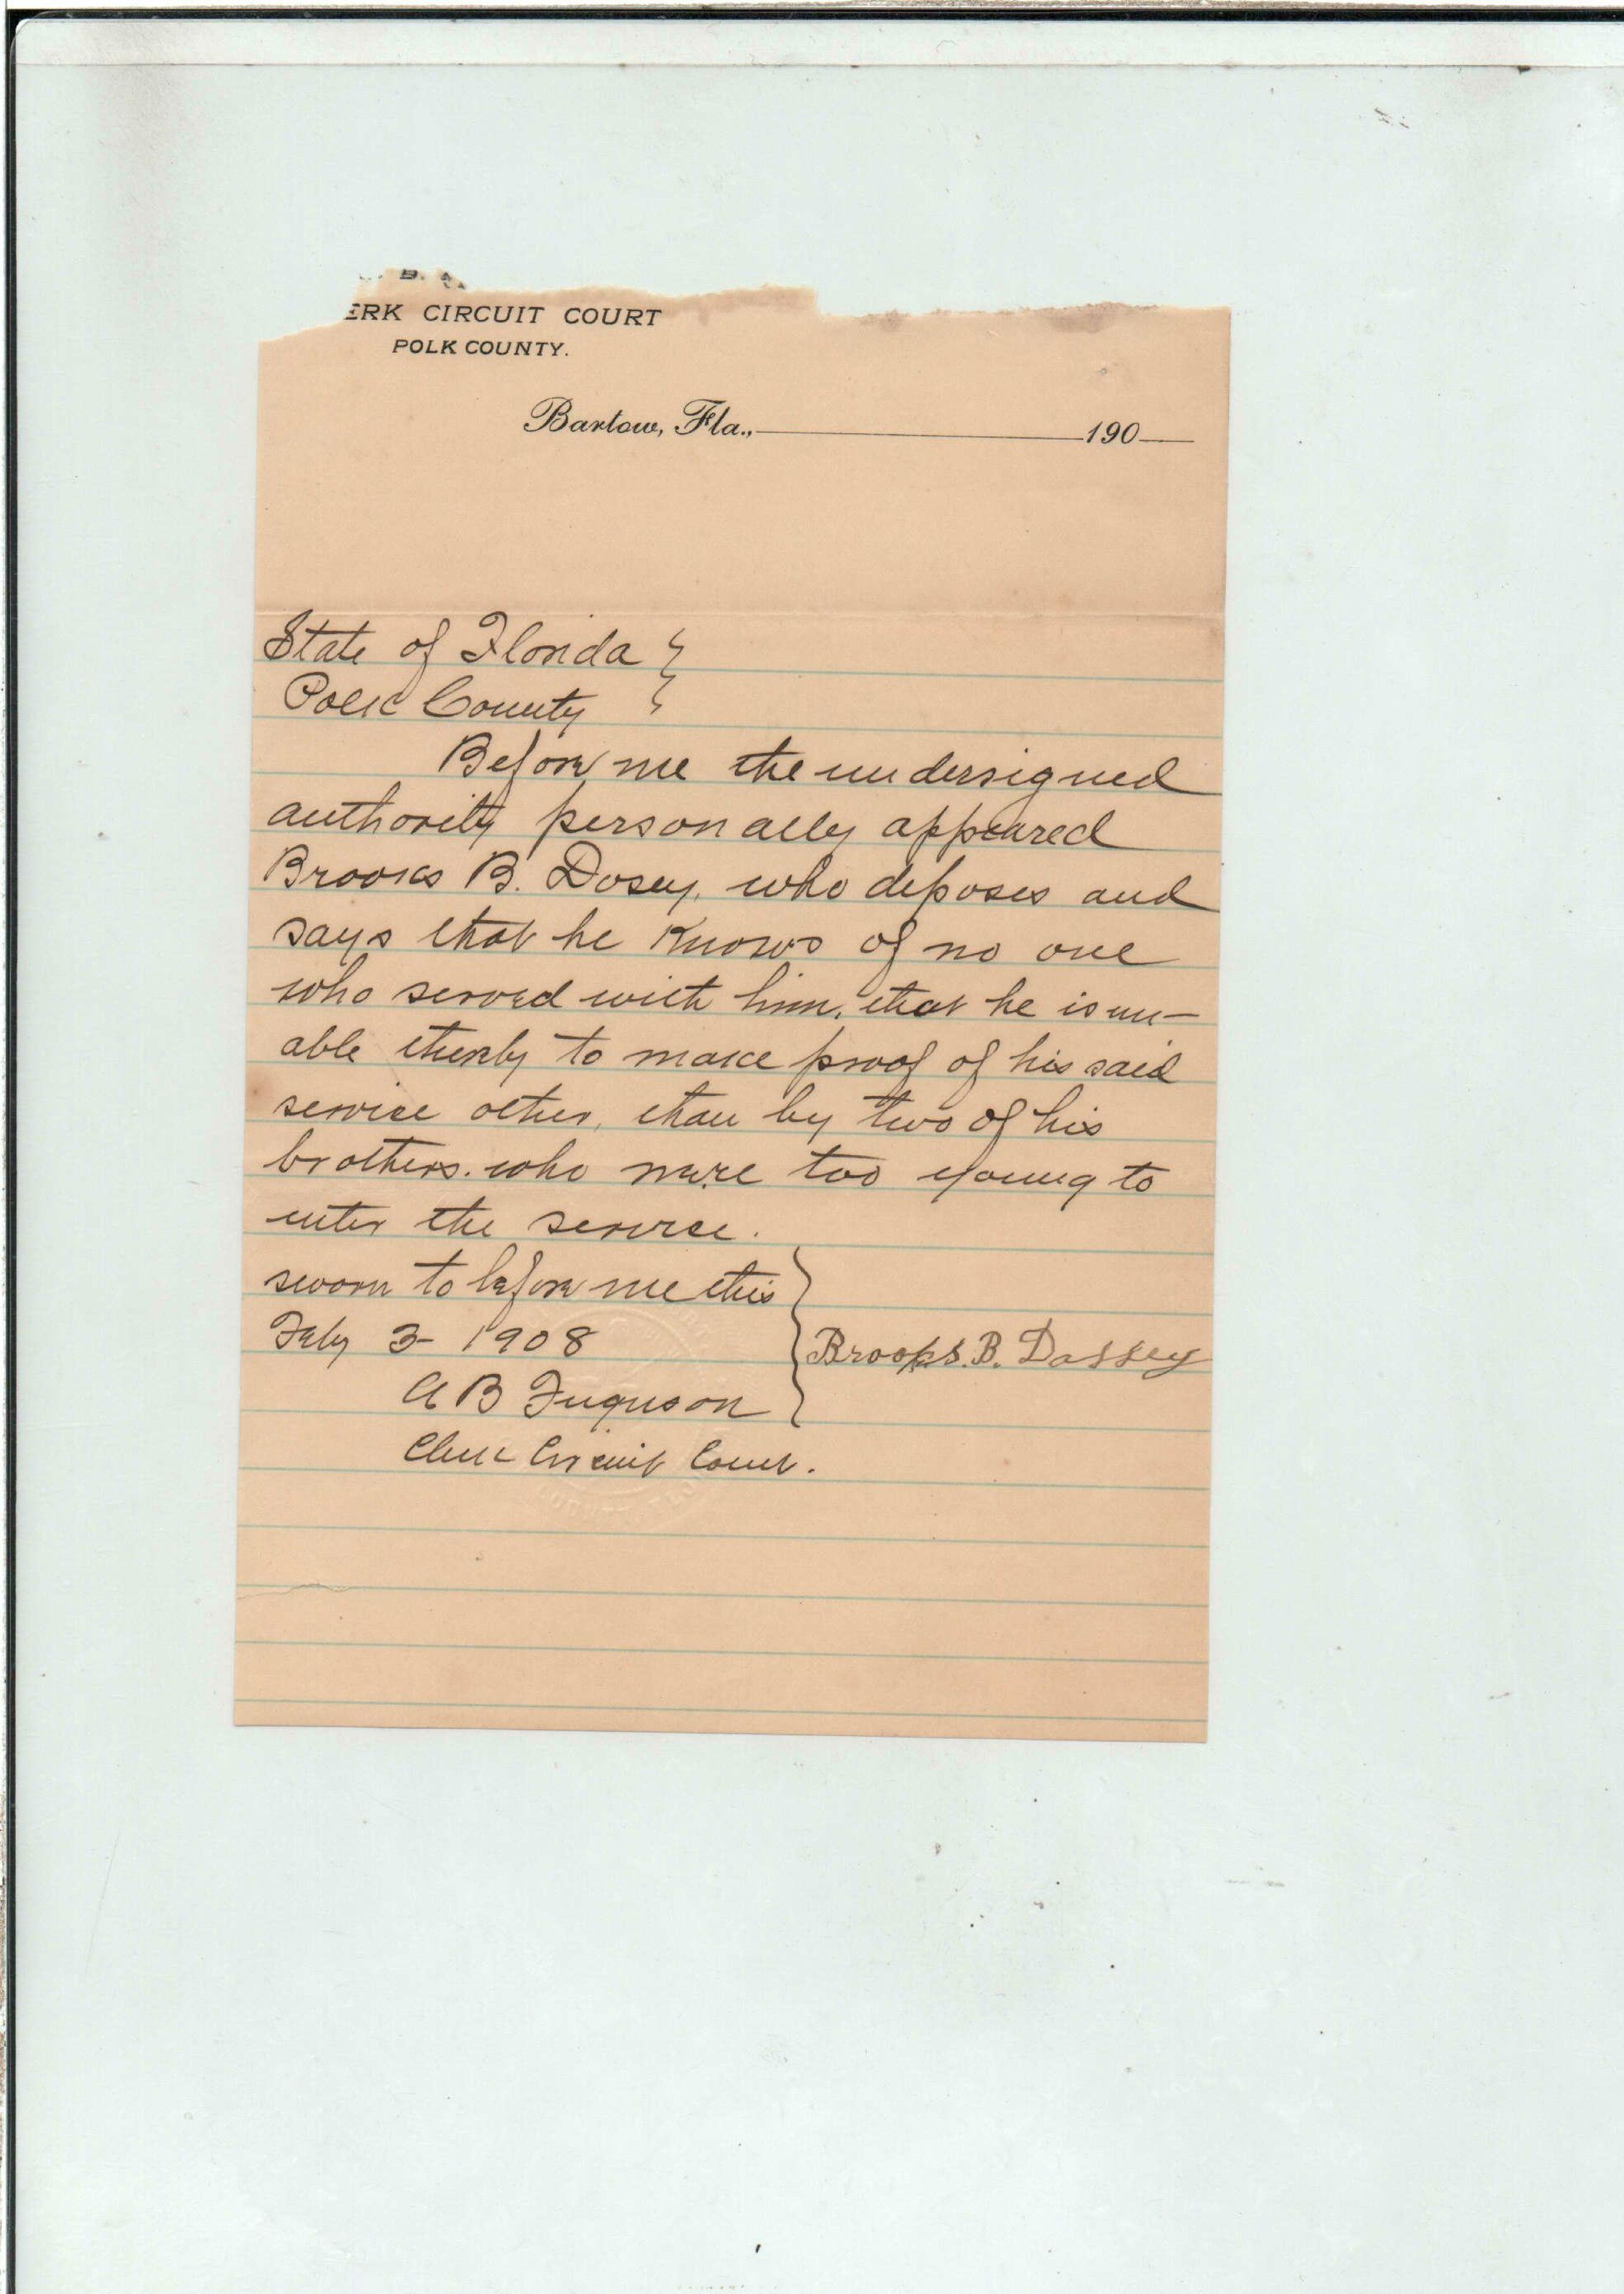 ERK CIRCUIT COURT
POLK COUNTY.
Bartow, Fla., 190
State of Florida }
Polk County }
Before me the undersigned
authority personally appeared
Brooks B. Dosey, who deposes and
says that he knows of no one
who served with him, that he is un-
able thereby to make proof of his said
service other, than by two of his
brothers. who were too young to
enter the service.
sworn to before me this
Feby 3- 1908
Brooks. B. Dossey
A B Ferguson
Clerk Circuit Court.